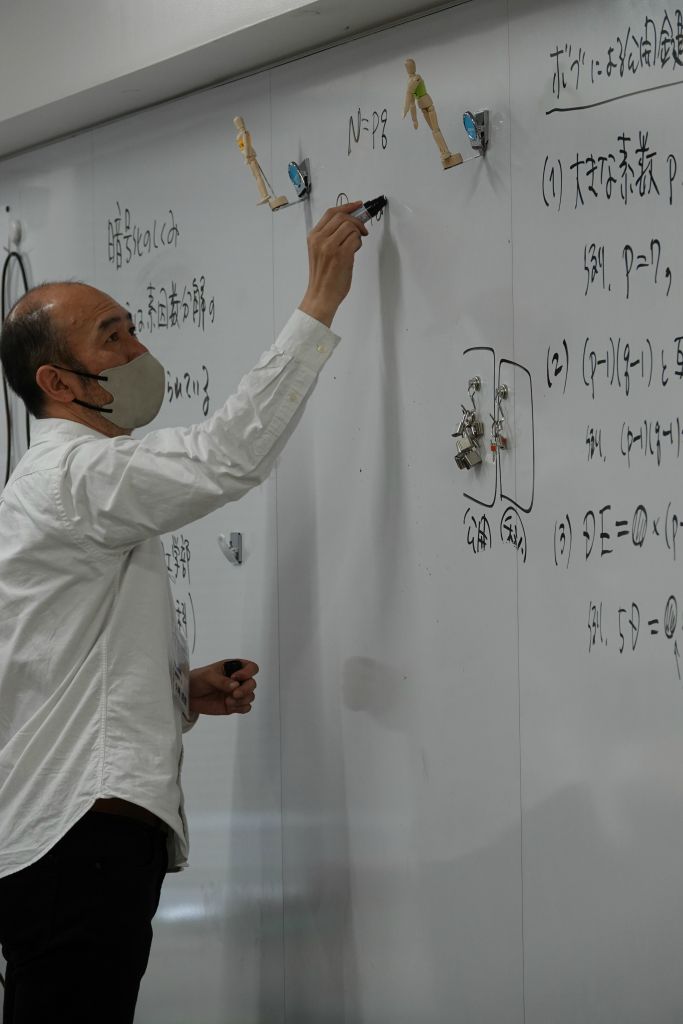 暗号化のしくみ
な素因数分解の
られている
学部
N=pq
公開
ボブによる公開鍵
(1) 大きな素数 p
例. p=7,
(2) (p-1)(q-1) と
例. (p-1)(q-1)
(3) DE= × (p-
例. 5D =